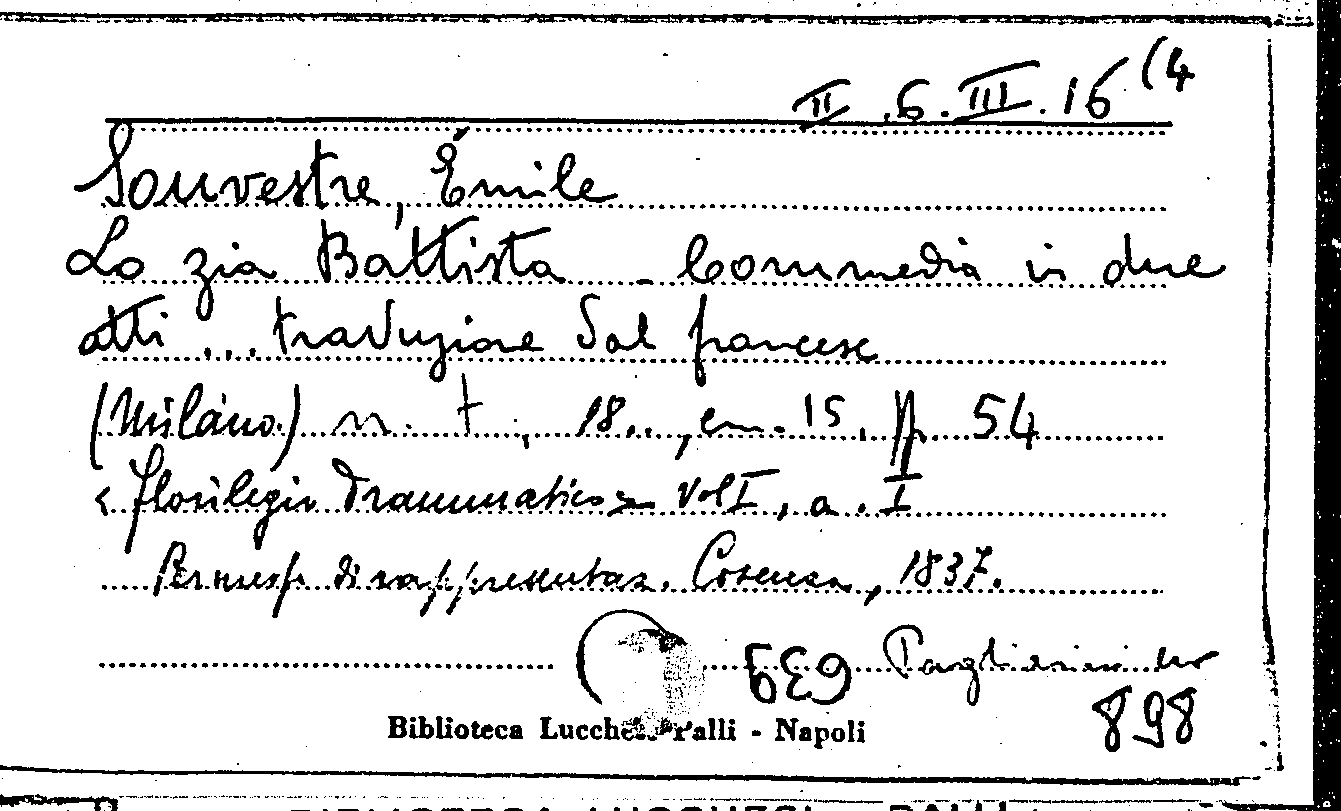 II .6. III. 16 (4
Souvestre, Émile
La zia Battista - Commedia in due
atti ... traduzione dal francese
(Milano) n. t., 18.., cm. 15, pp. 54
< Florilegio drammatico > vol I, a. I
Permesso di rappresentaz. Cosenza, 1837.
639
898
Biblioteca Lucchesi Palli - Napoli